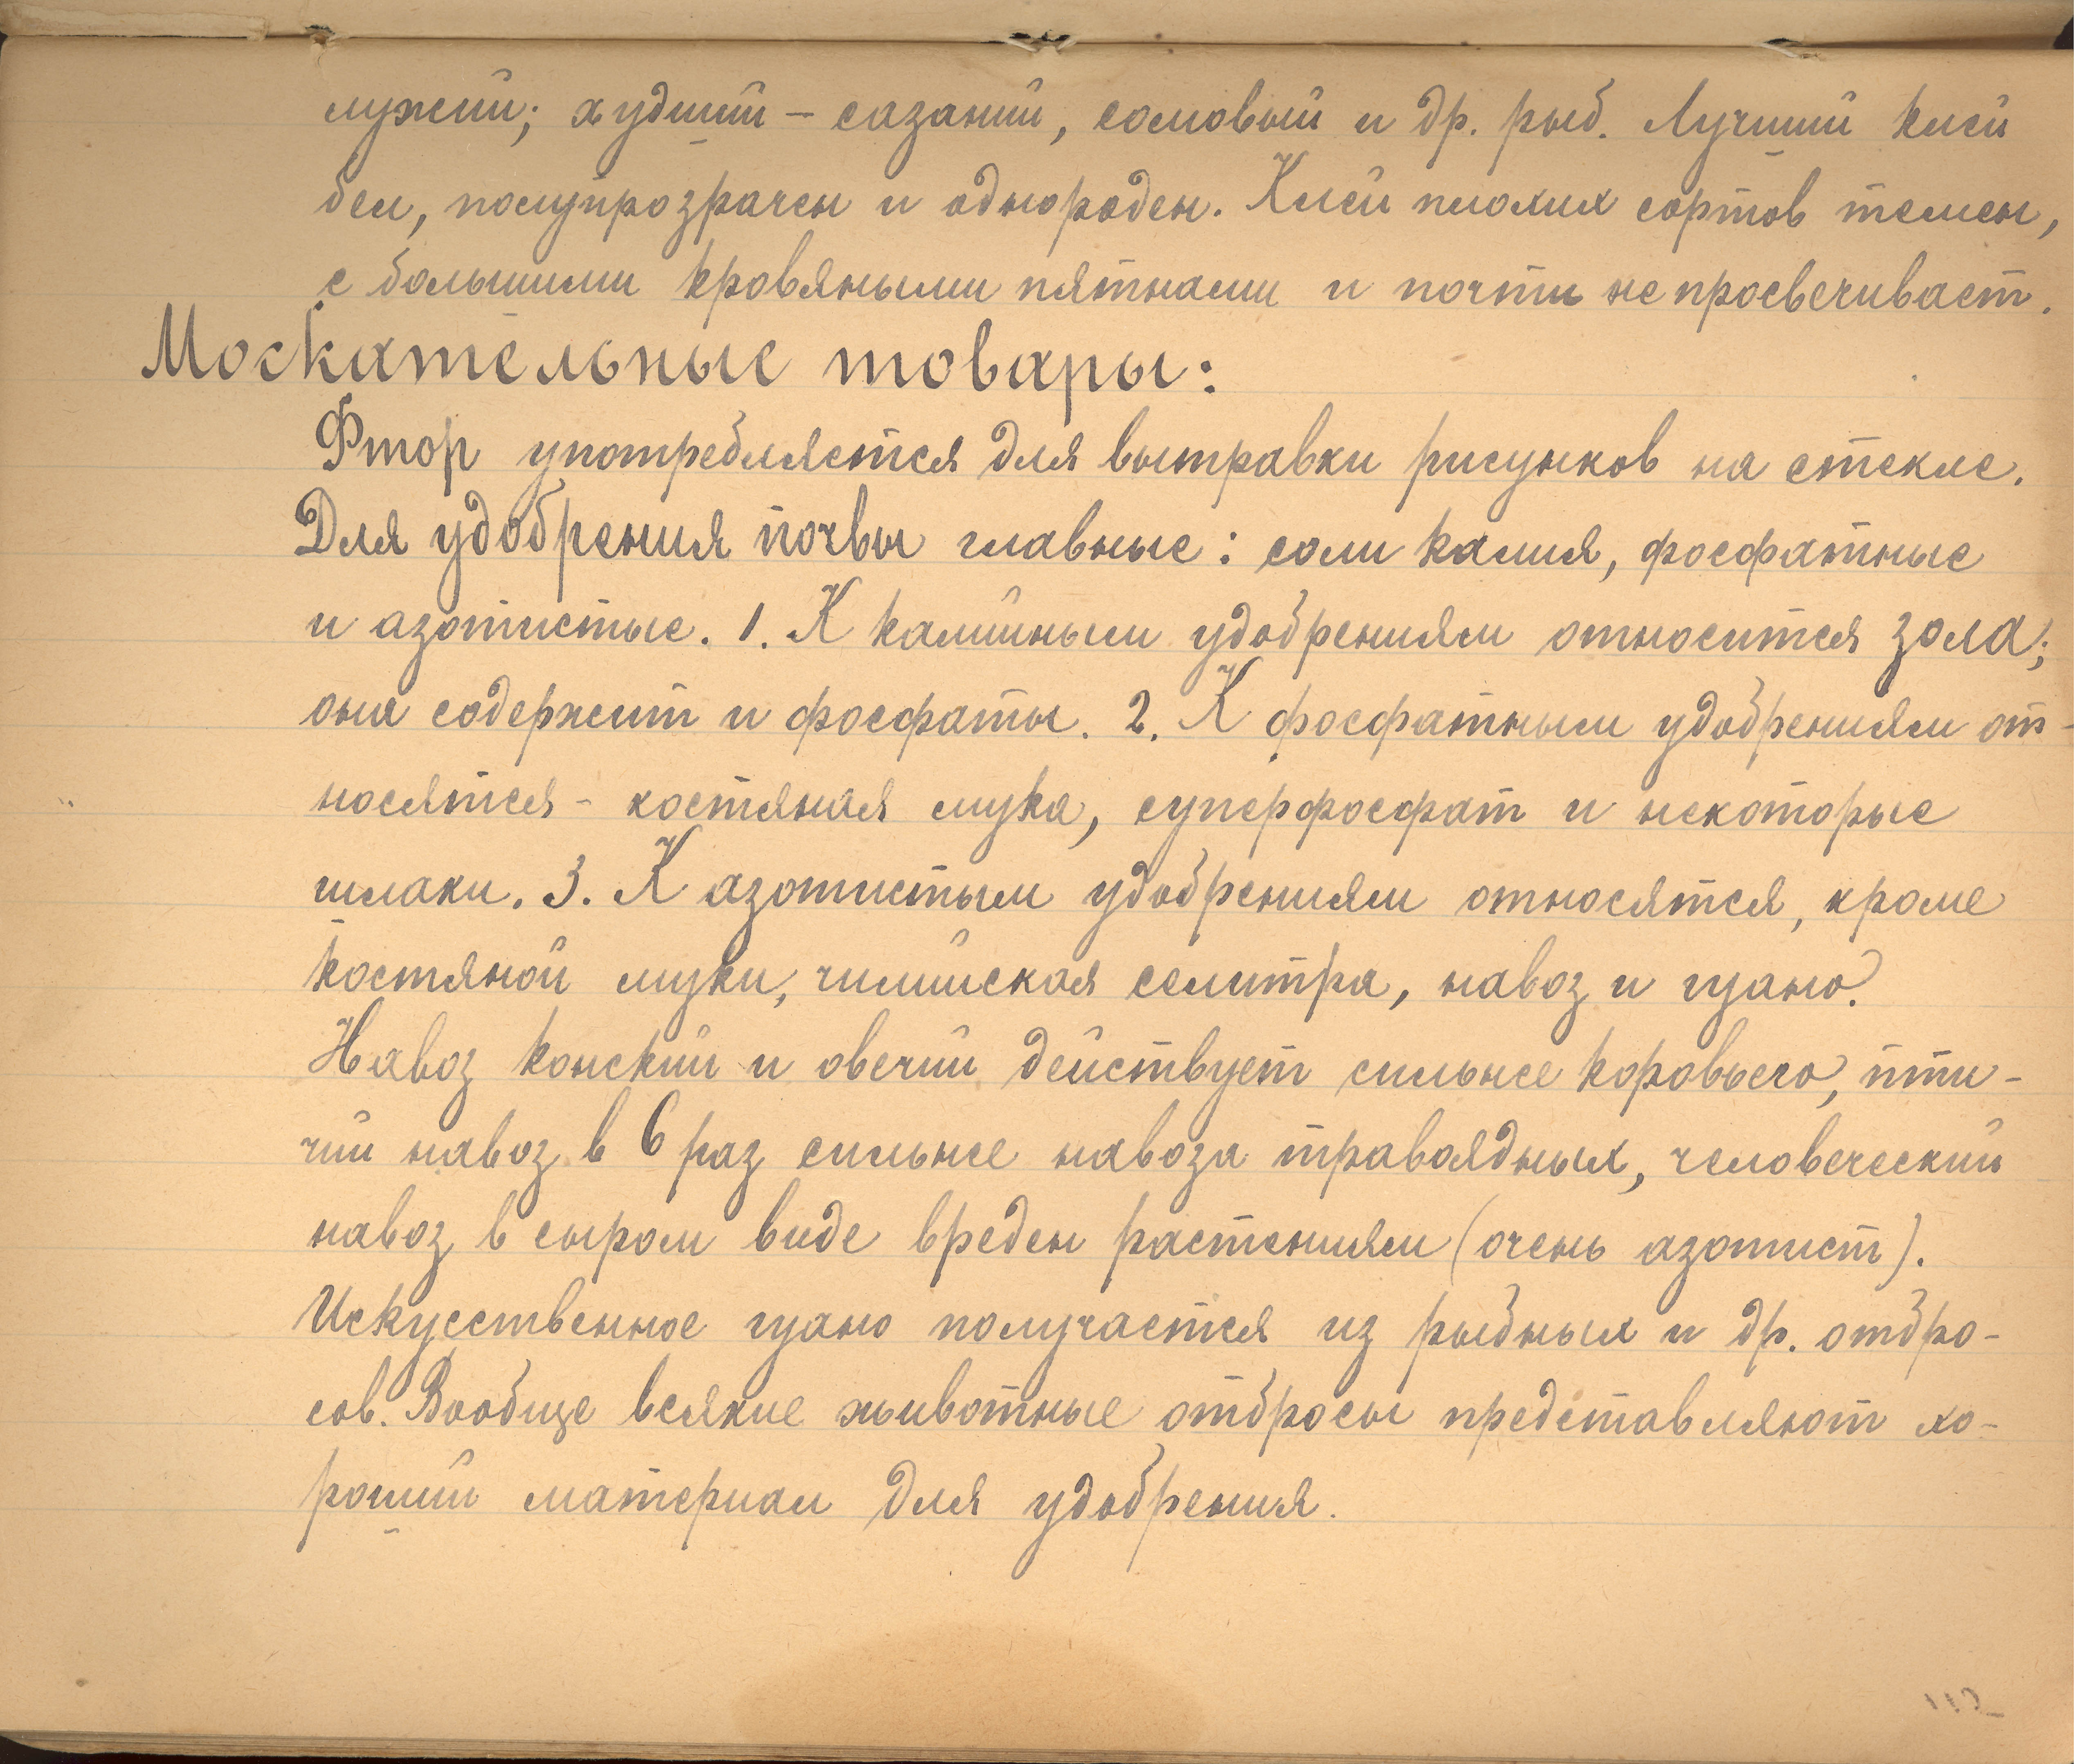 лужий; худший – сазаний, сомовый и др. рыб. Лучший клей
бел, полупрозрачен и однороден. Клей плохих сортов темен,
с большими кровяными пятнами и почти не просвечивает.
Москательные товары:
Фтор употребляется для вытравки рисунков на стекле.
Для удобрения почвы главные: соли калия, фосфатные
и азотистые. 1. К калийным удобрениям относится зола;
она содержит и фосфаты. 2. К фосфатным удобрениям от-
носятся – костяная мука, суперфосфат и некоторые
шлаки. 3. К азотистым удобрениям относятся, кроме
костяной муки, чилийская селитра, навоз и гуано.
Навоз конский и овечий действует сильнее коровьего, пти-
чий навоз в 6 раз сильнее навоза травоядных, человеческий
навоз в сыром виде вреден растениям (очень азотист).
Искусственное гуано получается из рыбных и др. отбро-
сов. Вообще всякие животные отбросы представляют хо-
роший материал для удобрения.